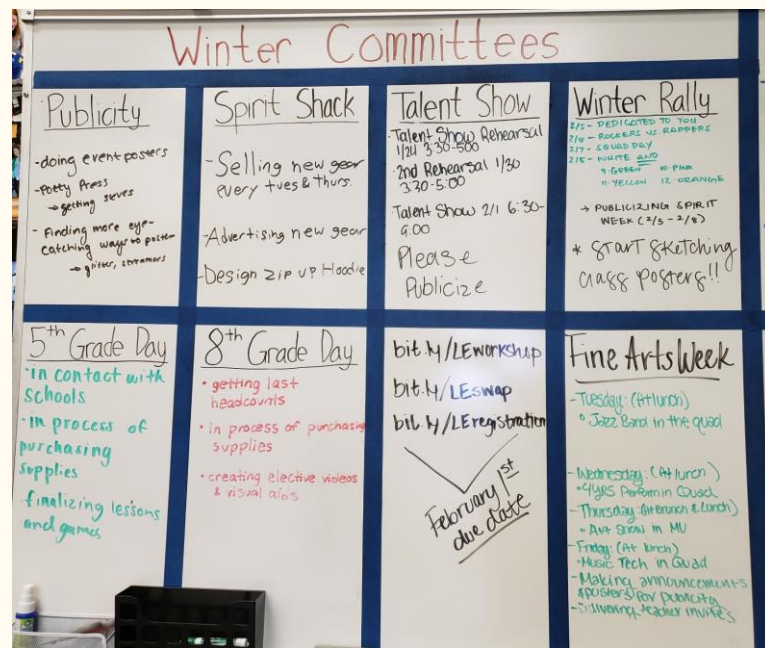 Winter Committees
Publicity
-doing event posters
-Potty Press
→ getting sleves
- Finding more eye-
catching ways to poster
→ glitter, streamers
Spirit Shack
-Selling new gear
every tues & Thurs.
-Advertising new gear
-Design zip up Hoodie
Talent Show
·Talent Show Rehearsal
1/24 3:30-500
·2nd Rehearsal 1/30
3:30-5:00
·Talent Show 2/1 6:30-
9:00
Please
Publicize
Winter Rally
2/5- DEDICATED TO YOU
2/6- ROCKERS VS. RAPPERS
2/7- SQUAD DAY
2/8- WHITE AND
9·GREEN 10·PINK
11·YELLOW 12·ORANGE
→ PUBLICIZING SPIRIT
WEEK (2/5-2/8)
* START SKETCHING
CLASS POSTERS!!
5th Grade Day
·in contact with
schools
·in process of
purchasing
supplies
·finalizing lessons
and games
8th Grade Day
• getting last
headcounts
• in process of purchasing
supplies
• creating elective videos
& visual aids
bit.ly/LEworkshop
bit.ly/LEswap
bit.ly/LEregistration
February 1st
due date
Fine Arts Week
-Tuesday: (At lunch)
• Jazz Band in the quad
-Wednesday: (At lunch)
•4yes Perform in Quad
-Thursday: (At brunch & Lunch)
• Art Show in MU
-Friday: (At lunch)
•Music Tech in Quad
-Making announcements
& posters for publicity
-Delivering teacher invites